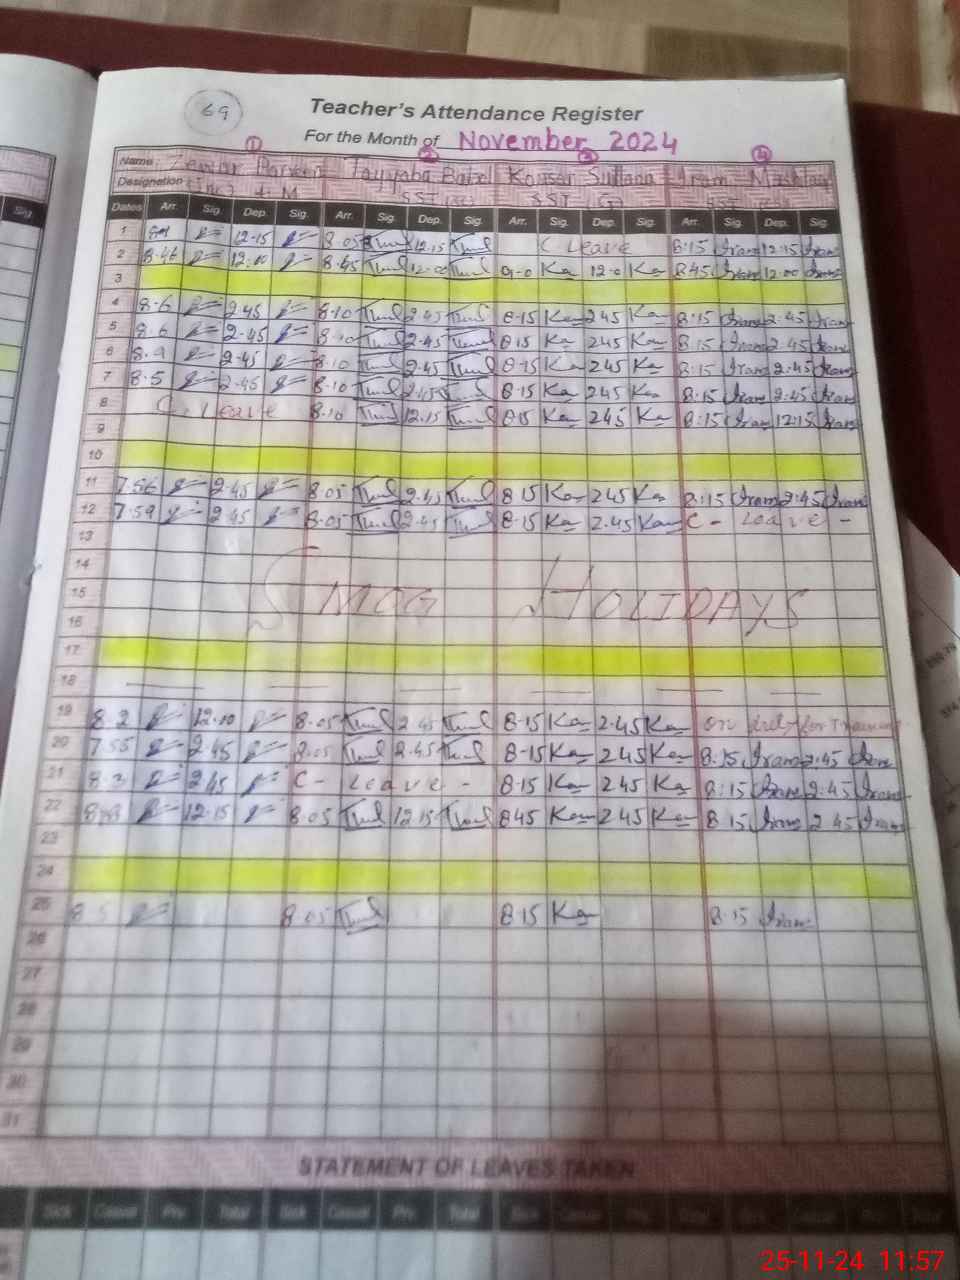 69
Teacher's Attendance Register
For the Month of November 2024
1 2 3 4
Name: Parveen Tayyaba Batool Kousar Sultana Iram Mushtaq
Designation SST SST (G) SST
Dates Arr. Sig. Dep. Sig. Arr. Sig. Dep. Sig. Arr. Sig. Dep. Sig. Arr. Sig. Dep. Sig.
1 12.15 8.05 12.15 C Leave 8.15 Iram 12.15 Iram
2 8.46 12.10 8.45 12.00 9.0 Ka 12.0 Ka 8.45 Iram 12.00 Iram
3
4 8.6 2.45 8.10 2.45 8.15 Ka 2.45 Ka 8.15 Iram 2.45 Iram
5 8.6 2.45 8.10 2.45 8.15 Ka 2.45 Ka 8.15 Iram 2.45 Iram
6 8.9 2.45 8.10 2.45 8.15 Ka 2.45 Ka 8.15 Iram 2.45 Iram
7 8.5 2.45 8.10 2.45 8.15 Ka 2.45 Ka 8.15 Iram 2.45 Iram
8 C. Leave 8.10 12.15 8.15 Ka 2.45 Ka 8.15 Iram 12.15 Iram
9
10
11 7.56 2.45 8.05 2.45 8.15 Ka 2.45 Ka 8.15 Iram 2.45 Iram
12 7.59 2.45 8.05 2.45 8.15 Ka 2.45 Kau C - Leave -
13
14
15 SMOG HOLIDAYS
16
17
18
19 8.2 12.10 8.05 2.45 8.15 Ka 2.45 Ka on duty for Training
20 7.55 2.45 8.05 2.45 8.15 Ka 2.45 Ka 8.15 Iram 2.45 Iram
21 8.3 2.45 C - Leave - 8.15 Ka 2.45 Ka 8.15 Iram 2.45 Iram
22 12.15 8.05 12.15 8.45 Ka 2.45 Ka 8.15 Iram 2.45 Iram
23
24
25 8.5 8.05 8.15 Ka 8.15 Iram
26
27
28
29
30
31
STATEMENT OF LEAVES TAKEN
Sick Casual Priv. Total Sick Casual Priv. Total Sick Casual Priv. Total Sick Casual Priv. Total
25-11-24 11:57